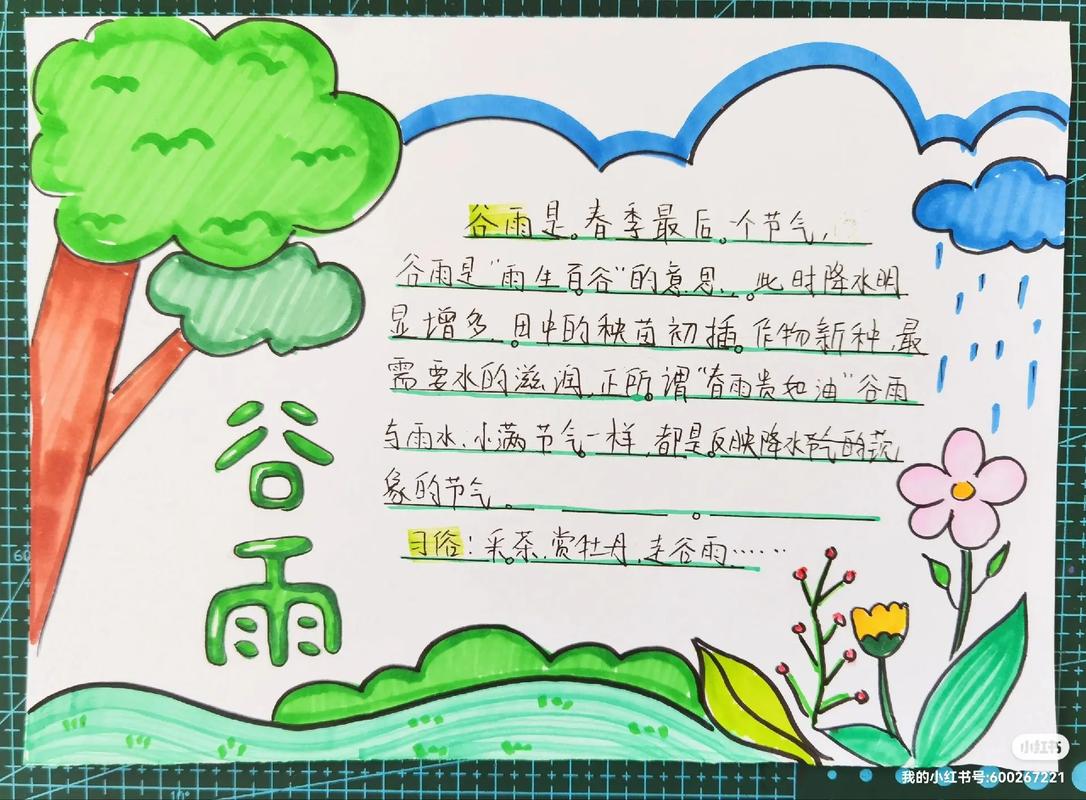 谷雨
谷雨是春季最后一个节气,
谷雨是"雨生百谷"的意思.此时降水明
显增多.田中的秧苗初插.作物新种,最
需要水的滋润,正所谓"春雨贵如油"谷雨
与雨水.小满节气一样,都是反映降水节气的现
象的节气.
习俗:采茶.赏牡丹.走谷雨……
小红书
我的小红书号:600267221
60
10°